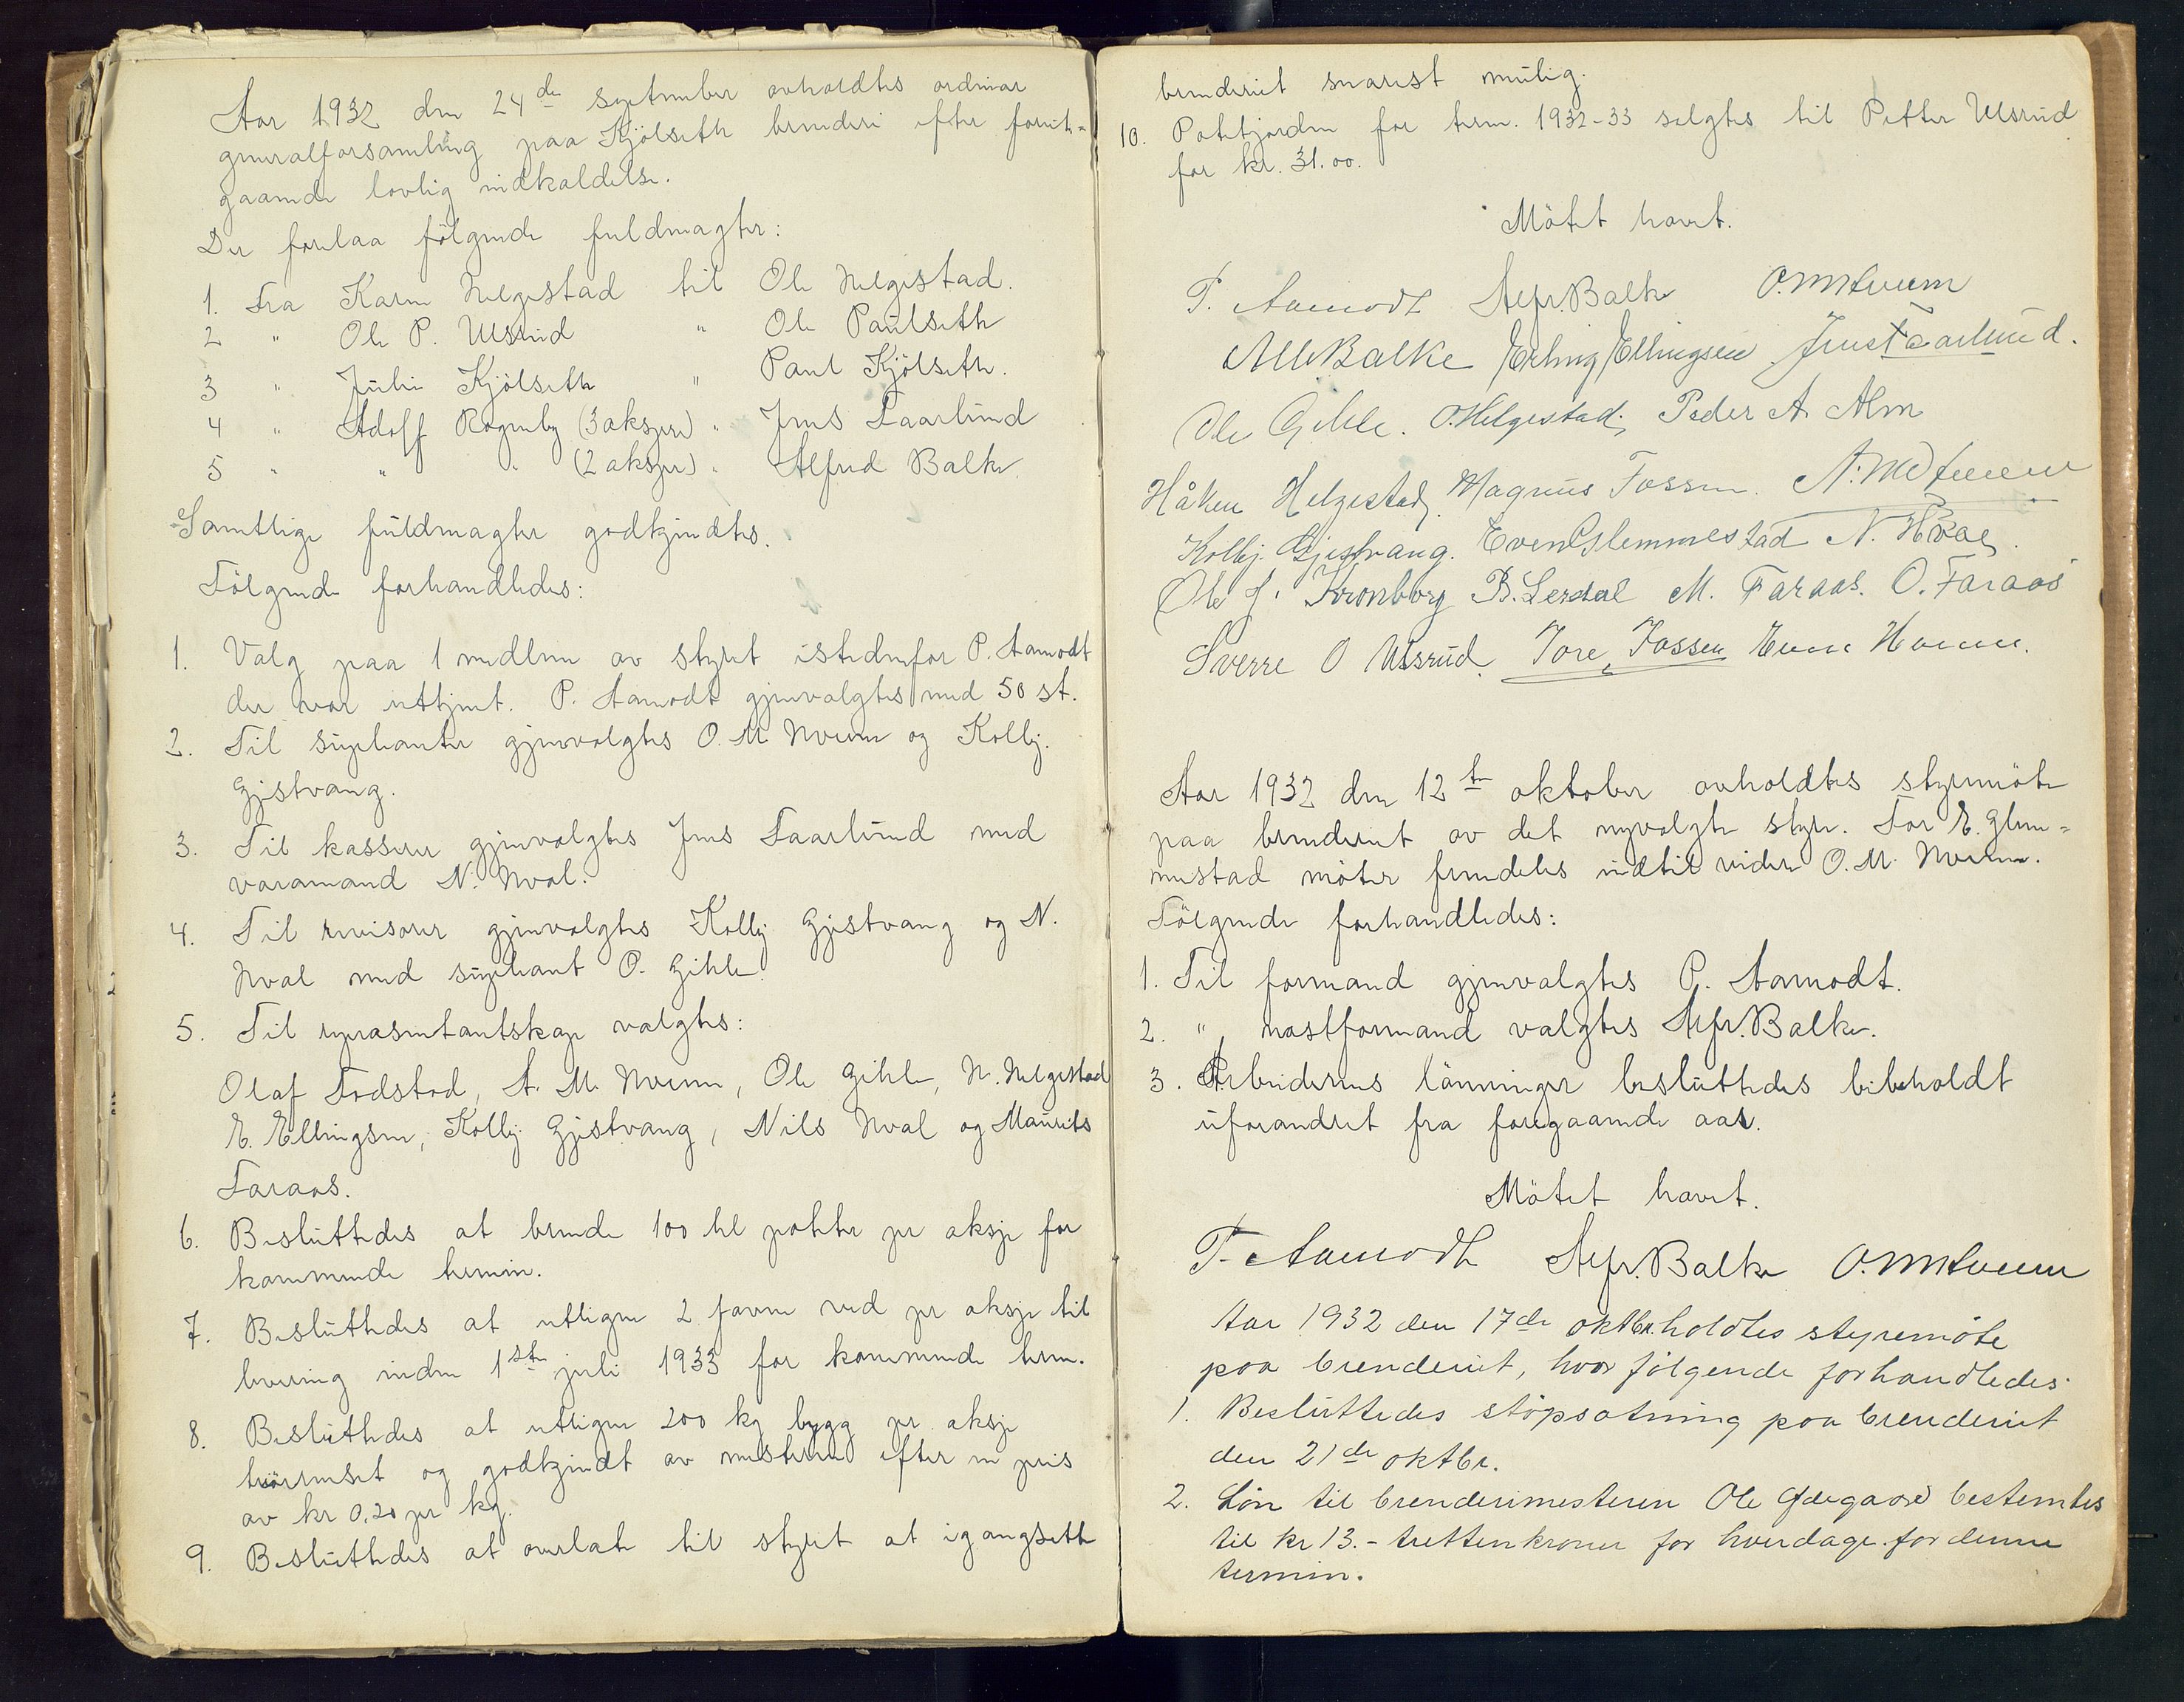 Aar 1932 den 24de september avholdtes ordinær
generalforsamling paa Kjölseth brenderi efter forut-
gaaende lovlig indkaldelse.
Der forelaa fölgende fuldmagter:
1. Fra Karen Helgestad til Ole Helgestad.
2 " Ole P. Ulsrud " Ole Paulseth
3 " Julie Kjölseth " Paul Kjölseth.
4 " Adolf Rogneby (3 aksjer) " Jens Faarlund
5 " " " (2 aksjer) " Alfred Balke.
Samtlige fuldmagter godkjendtes.
Fölgende forhandledes:
1. Valg paa 1 medlem av styret istedenfor P. Aamodt
der var uttjent. P. Aamodt gjenvalgtes med 50 st.
2. Til supleanter gjenvalgtes O. M. Hveem og Kolbj.
Gjestvang.
3. Til kasserer gjenvalgtes Jens Faarlund med
varamand N. Hval.
4. Til revisorer gjenvalgtes Kolbj Gjestvang og N.
Hval med supleant O. Gihle.
5. Til representantskap valgtes:
Olaf Fodstad, A. M. Hveem, Ole Gihle, H. Helgestad
E. Ellingsen, Kolbj Gjestvang, Nils Hval og Maurits
Faraas.
6. Besluttedes at brende 100 hl poteter pr aksje for
kommende termin.
7. Besluttedes at utligne 2 favne ved pr aksje til
levering inden 1ste juli 1933 for kommende term.
8. Besluttedes at utligne 200 kg bygg pr. aksje
törrenset og godkjendt av mesteren efter en pris
av kr 0,20 pr kg.
9. Besluttedes at overlate til styret at igangsette
brenderiet snarest mulig.
10. Potetjorden for term. 1932-33 selgtes til Petter Ulsrud
for kr. 31.00.
Mötet hævet.
P. Aamodt Alfr. Balke O. M. Hveem
M Balke Erling Ellingsen Jens Faarlund.
Ole Gihle. O. Helgestad, Peder A. Alm
Håken Helgestad. Magnus Fossen. A. M. Hveem
Kolbj. Gjestvang. Even Glemmestad N. Hval.
Ole J. Kronborg B. Lerdal M. Faraas. O. Faraas
Sverre O Ulsrud. Tore Fossen Even
Aar 1932 den 12te oktober avholdtes styremöte
paa brenderiet av det nyvalgte styre. For E. Glem-
mestad möter fremdeles indtil videre O. M. Hveem.
Fölgende forhandledes:
1. Til formand gjenvalgtes P. Aamodt.
2. " næstformand valgtes Alfr. Balke.
3. Arbeidernes lönninger besluttedes bibeholdt
uforandret fra foregaaende aar.
Mötet hævet.
P. Aamodt Alfr. Balke O. M. Hveem
Aar 1932 den 17de oktbr. holdtes styremöte
paa brenderiet, hvor fölgende forhandledes:
1. Besluttedes stöpsætning paa brenderiet
den 21de oktbr.
2. Lön til brenderimesteren Ole Ødegaard bestemtes
til kr 13.- tretten kroner for hverdage for denne
termin.